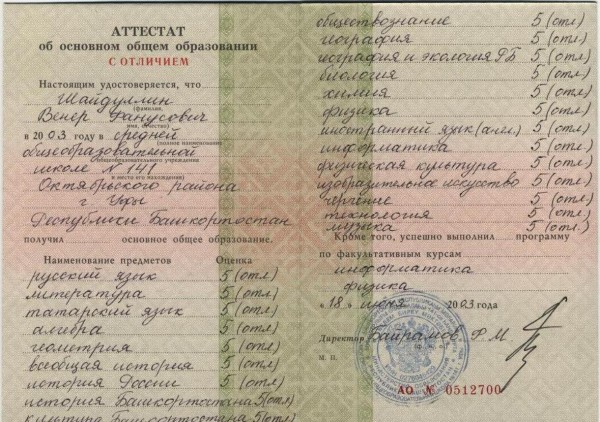 АТТЕСТАТ
об основном общем образовании
С ОТЛИЧИЕМ
Настоящим удостоверяется, что
Шайдуллин
(фамилия,
Венер Фанусович
имя, отчество)
в 2003 году в средней
(полное наименование
общеобразовательной
общеобразовательного учреждения
школе № 141
и место его нахождения)
Октябрьского района
г. Уфы
Республики Башкортостан
получил основное общее образование.
Наименование предметов Оценка
русский язык 5 (отл)
литература 5 (отл)
татарский язык 5 (отл)
алгебра 5 (отл)
геометрия 5 (отл)
всеобщая история 5 (отл)
история России 5 (отл)
история Башкортостана 5(отл)
культура Башкортостана 5(отл)
обществознание 5 (отл)
география 5 (отл)
география и экология РБ 5 (отл)
биология 5 (отл)
химия 5 (отл)
физика 5 (отл)
иностранный язык (англ.) 5 (отл)
информатика 5 (отл)
физическая культура 5 (отл)
изобразительное искусство 5 (отл)
черчение 5 (отл)
технология 5 (отл)
музыка 5 (отл)
Кроме того, успешно выполнил программу
по факультативным курсам
информатика
физика
« 18 » июня 2003 года
Директор Байрамов Р. М
М. П.
АО № 0512700